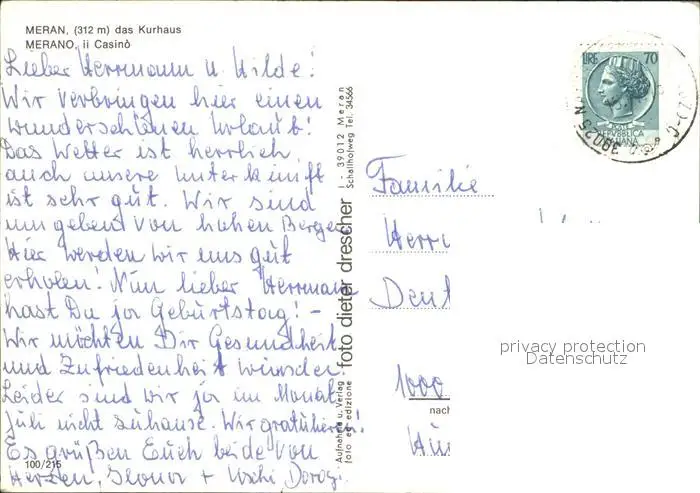 MERAN, (312 m) das Kurhaus
MERANO, il Casinò
Lieber Herrmann u. Hilde!
Wir verbringen hier einen
wunderschönen Urlaub!
Das Wetter ist herrlich,
auch unsere Unterkunft
ist sehr gut. Wir sind
umgebend von hohen Bergen
Hier werden wir uns gut
erholen! Nun lieber Herrmann
hast Du ja Geburtstag! –
Wir möchten Dir Gesundheit
und Zufriedenheit wünschen.
Leider sind wir ja im Monat
Juli nicht zuhause. Wir gratulieren!
Es grüßen Euch beide von
Herzen, + Uschi
100/215
Aufnahme u. Verlag
foto ed edizione
foto dieter drescher
I - 39012 Meran
Schallhofweg Tel. 34566
LIRE 70
POSTE
REPVBBLICA
ITALIANA
39025
Familie
Herrn
1000
nach
privacy protection
Datenschutz